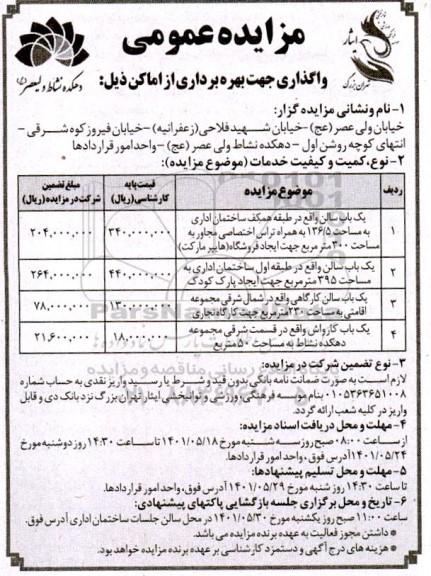 مزایده عمومی
واگذاری جهت بهره برداری از اماکن ذیل:
ایثار
تهران بزرگ
دهکده نشاط ولیعصر
۱- نام و نشانی مزایده گزار:
خیابان ولی عصر (عج) -خیابان شهید فلاحی (زعفرانیه) -خیابان فیروز کوه شرقی -
انتهای کوچه روشن اول - دهکده نشاط ولی عصر (عج) -واحد امور قراردادها
۲- نوع، کمیت و کیفیت خدمات (موضوع مزایده):
ردیف موضوع مزایده قیمت پایه کارشناسی (ریال) مبلغ تضمین شرکت در مزایده (ریال)
۱ یک باب سالن واقع در طبقه همکف ساختمان اداری به مساحت ۱۲۶/۵ به همراه تراس اختصاصی مجاور به مساحت ۳۰۰ متر مربع جهت ایجاد فروشگاه (هایپر مارکت) ۳۴۰,۰۰۰,۰۰۰ ۲۰۴,۰۰۰,۰۰۰
۲ یک باب سالن واقع در طبقه اول ساختمان اداری به مساحت ۳۹۵ متر مربع جهت ایجاد پارک کودک ۴۴۰,۰۰۰,۰۰۰ ۲۶۴,۰۰۰,۰۰۰
۳ یک باب سالن کارگاهی واقع در شمال شرقی مجموعه اقامتی به مساحت ۲۳۰ متر مربع جهت کارگاه نجاری ۱۳۰,۰۰۰,۰۰۰ ۷۸,۰۰۰,۰۰۰
۴ یک باب کارواش واقع در قسمت شرقی مجموعه دهکده نشاط به مساحت ۵۰ متر مربع ۱۸,۰۰۰,۰۰۰ ۲۱,۶۰۰,۰۰۰
۳- نوع تضمین شرکت در مزایده:
لازم است به صورت ضمانت نامه بانکی بدون قید و شرط یا رسید واریز نقدی به حساب شماره
۰۱۰۵۳۶۳۶۵۱۰۰۸ بنام موسسه فرهنگی، ورزشی و توانبخشی ایثار تهران بزرگ نزد بانک دی و قابل
واریز در کلیه شعب ارائه گردد.
۴- مهلت و محل دریافت اسناد مزایده:
از ساعت ۰۸:۰۰ صبح روز سه شنبه مورخ ۱۴۰۱/۰۵/۱۸ تا ساعت ۱۴:۳۰ روز دوشنبه مورخ
۱۴۰۱/۰۵/۲۴ آدرس فوق، واحد امور قراردادها.
۵- مهلت و محل تسلیم پیشنهادها:
تا ساعت ۱۴:۳۰ روز شنبه مورخ ۱۴۰۱/۰۵/۲۹ آدرس فوق، واحد امور قراردادها.
۶- تاریخ و محل برگزاری جلسه بازگشایی پاکتهای پیشنهادی:
ساعت ۱۱:۰۰ صبح روز یکشنبه مورخ ۱۴۰۱/۰۵/۳۰ در محل سالن جلسات ساختمان اداری آدرس فوق.
* داشتن مجوز فعالیت به عهده برنده مزایده می باشد.
* هزینه های درج آگهی و دستمزد کارشناسی بر عهده برنده مزایده خواهد بود.